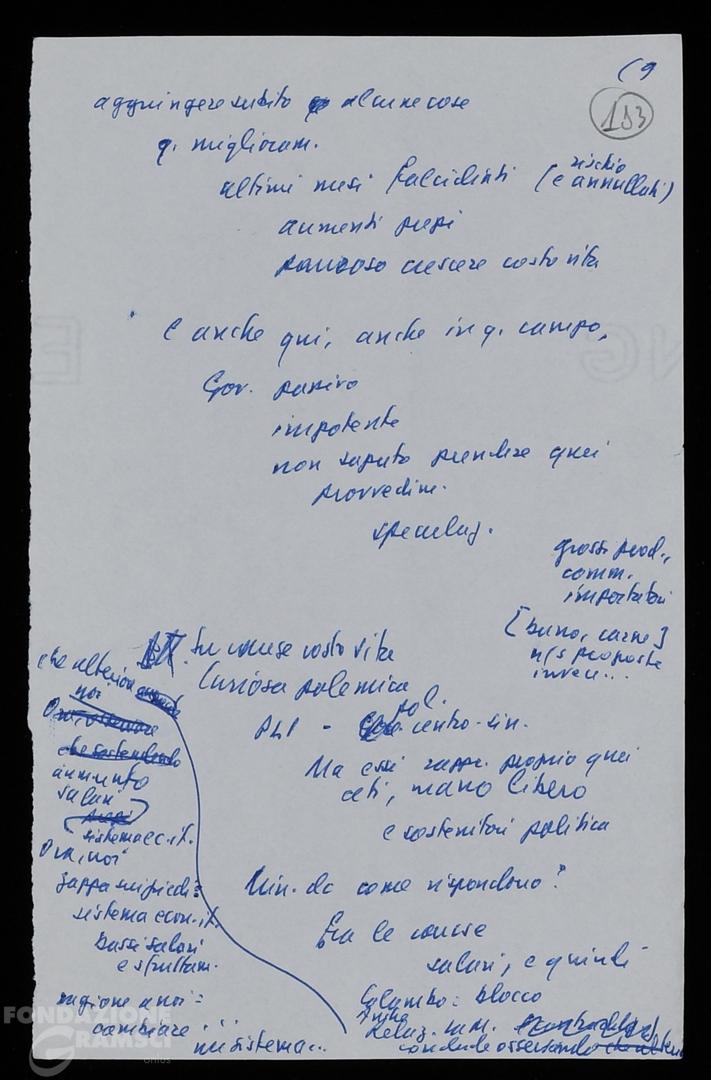 ( 9
183
aggiungere subito alcune cose
q. miglioram.
ultimi mesi falcidiati (e rischio annullati)
aumenti prezzi
pauroso crescere costo vita
e anche qui, anche in q. campo,
Gov. passivo
impotente
non saputo prendere quei
provvedim.
speculaz.
grossi prod.,
comm.
importatori
[burro, carne]
n/s proposte
invece...
Su cause costo vita
Curiosa polemica
PLI - pol. centro-sin.
Ma essi rappr. proprio quei
ceti, mano libera
e sostenitori politica
Min. dc come rispondono?
Fra le cause
salari, e quindi
Colombo: blocco
Anche
Relaz.
conclude osservando
che ulteriore
noi
che sostenendo
aumento
salari
prezzi
sistema ec. it.
Ora, noi
zappa sui piedi:
sistema econ. it.
bassi salari
e sfruttam.
ragione a noi:
cambiare...
nel sistema...
FONDAZIONE
GRAMSCI
onlus